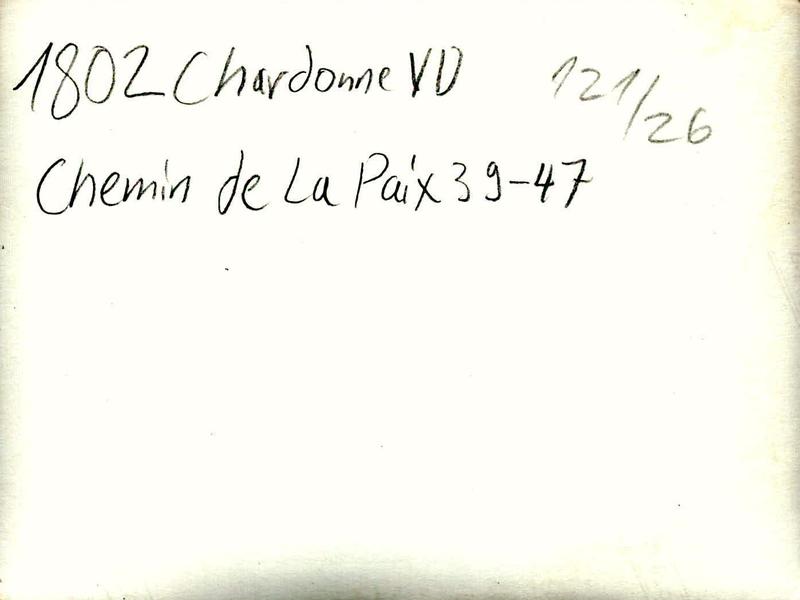 1802 Chardonne VD 121/26
Chemin de La Paix 39-47